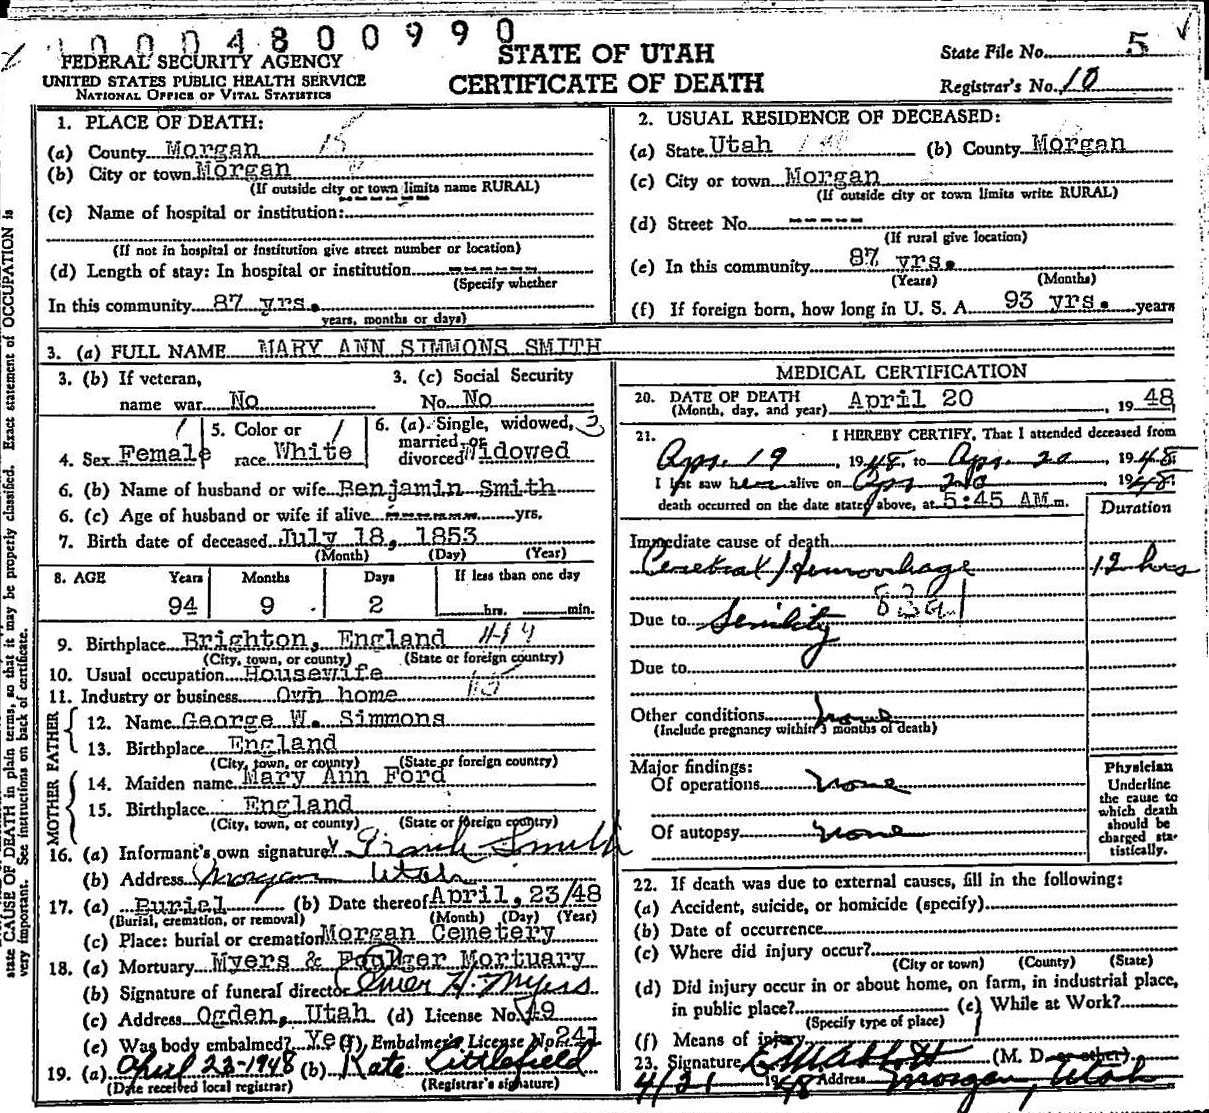 10004800990
FEDERAL SECURITY AGENCY
UNITED STATES PUBLIC HEALTH SERVICE
NATIONAL OFFICE OF VITAL STATISTICS
STATE OF UTAH
CERTIFICATE OF DEATH
State File No. 5
Registrar's No. 10
1. PLACE OF DEATH:
(a) County Morgan 15
(b) City or town Morgan
(If outside city or town limits name RURAL)
(c) Name of hospital or institution: ------
(If not in hospital or institution give street number or location)
(d) Length of stay: In hospital or institution ------
(Specify whether
In this community 87 yrs.
years, months or days)
2. USUAL RESIDENCE OF DECEASED:
(a) State Utah (b) County Morgan
(c) City or town Morgan
(If outside city or town limits write RURAL)
(d) Street No. -----
(If rural give location)
(e) In this community 87 yrs.
(Years) (Months)
(f) If foreign born, how long in U. S. A. 93 yrs. years
3. (a) FULL NAME MARY ANN SIMMONS SMITH
3. (b) If veteran, 3. (c) Social Security
name war No No. No
4. Sex Female 5. Color or race White 6. (a) Single, widowed, married or divorced Widowed
6. (b) Name of husband or wife Benjamin Smith
6. (c) Age of husband or wife if alive ------- yrs.
7. Birth date of deceased July 18, 1853
(Month) (Day) (Year)
8. AGE Years Months Days If less than one day
94 9 2 hrs. min.
9. Birthplace Brighton, England
(City, town, or county) (State or foreign country)
10. Usual occupation Housewife
11. Industry or business Own home
FATHER
12. Name George W. Simmons
13. Birthplace England
(City, town, or county) (State or foreign country)
MOTHER
14. Maiden name Mary Ann Ford
15. Birthplace England
(City, town, or county) (State or foreign country)
16. (a) Informant's own signature x Frank Smith
(b) Address Morgan Utah
17. (a) Burial (b) Date thereof April, 23/48
(Burial, cremation, or removal) (Month) (Day) (Year)
(c) Place: burial or cremation Morgan Cemetery
18. (a) Mortuary Myers & Foulger Mortuary
(b) Signature of funeral director Omer H. Myers
(c) Address Ogden, Utah (d) License No. 49
(e) Was body embalmed? Yes (f) Embalmer's License No. 241
19. (a) April 23-1948 (b) Kate Littlefield
(Date received local registrar) (Registrar's signature)
MEDICAL CERTIFICATION
20. DATE OF DEATH
(Month, day, and year) April 20, 1948
21. I HEREBY CERTIFY, That I attended deceased from
Apr. 19, 1948, to Apr. 20, 1948
I last saw her alive on Apr 20, 1948
death occurred on the date stated above, at 5:45 AM. m.
Duration
Immediate cause of death
Cerebral Hemorrhage 12 hrs
83a1
Due to Senility
Due to
Other conditions none
(Include pregnancy within 3 months of death)
Major findings:
Of operations none
Of autopsy none
Physician
Underline
the cause to
which death
should be
charged sta-
tistically.
22. If death was due to external causes, fill in the following:
(a) Accident, suicide, or homicide (specify)
(b) Date of occurrence
(c) Where did injury occur?
(City or town) (County) (State)
(d) Did injury occur in or about home, on farm, in industrial place,
in public place? (e) While at Work?
(Specify type of place)
(f) Means of injury
23. Signature E M Abbott (M. D. or other)
4/21 1948 Address Morgan, Utah
state CAUSE OF DEATH in plain terms, so that it may be properly classified. Exact statement of OCCUPATION is
very important. See instructions on back of certificate.